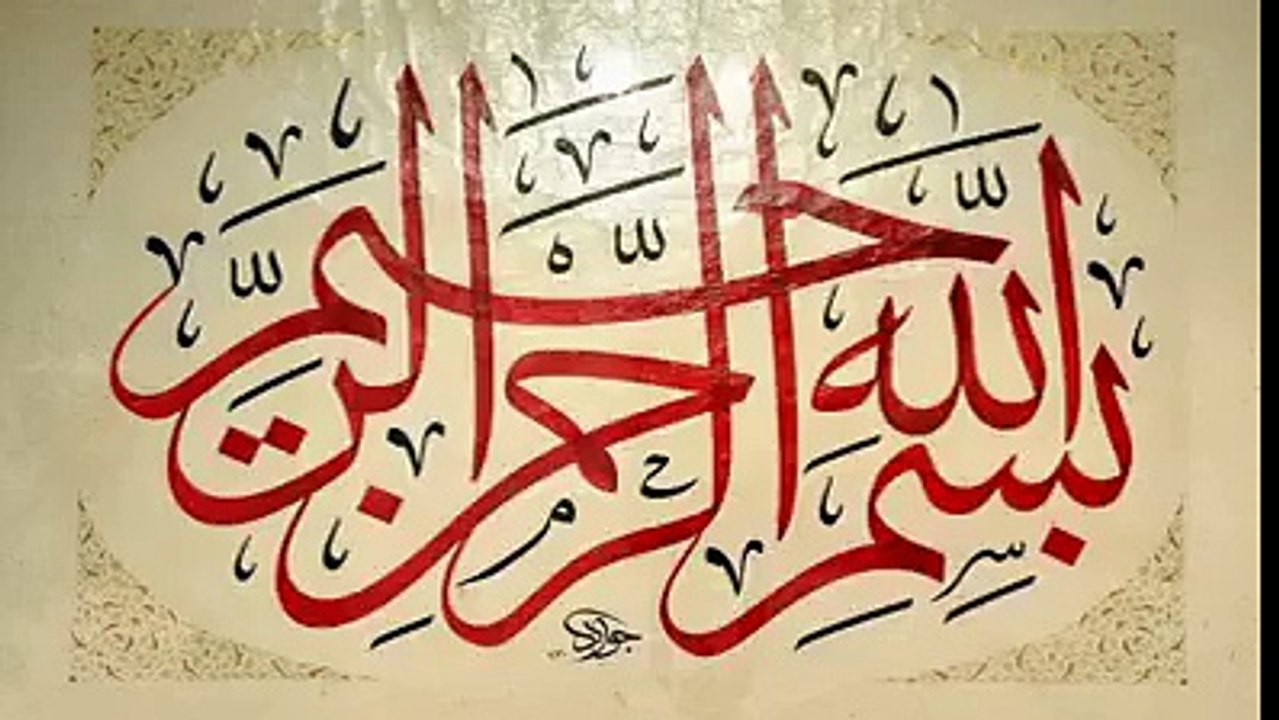 بسم الله الرحمن الرحيم
جواد